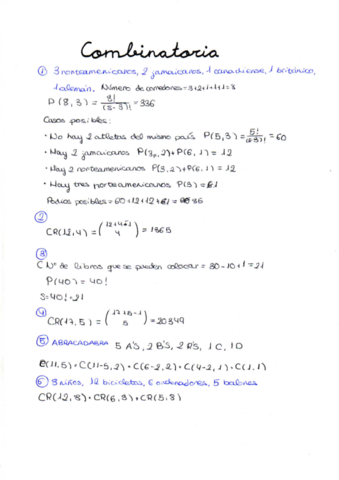 Combinatoria
① 3 norteamericanos, 2 jamaicanos, 1 canadiense, 1 británico,
1 alemán. Número de corredores = 3+2+1+1+1 = 8
P(8,3) = 8!/(8-3)! = 336
Casos posibles:
• No hay 2 atletas del mismo país P(5,3) = 5!/(5-3)! = 60
• Hay 2 jamaicanos P(3,2)·P(6,1) = 12
• Hay 2 norteamericanos P(3,2)·P(6,1) = 12
• Hay tres norteamericanos P(3) =
Podios posibles = 60+12+12+
②
CR(12,4) = (12+4-1 4) = 1365
③
Nº de libros que se pueden colocar = 30-10+1 = 21
P(40) = 40!
S = 40! · 21
④
CR(17,5) = (17+5-1 5) = 20349
⑤ ABRACADABRA 5 A'S, 2 B'S, 2 R'S, 1 C, 1 D
C(11,5) · C(11-5,2) · C(6-2,2) · C(4-2,1) · C(1,1)
⑥ 3 niños, 12 bicicletas, 6 ordenadores, 5 balones
CR(12,3) · CR(6,3) · CR(5,3)